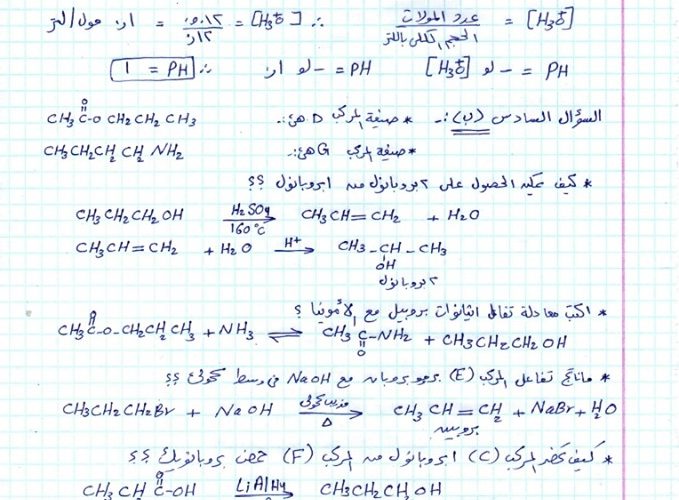 [H₃O⁺] = عدد المولات / الحجم الكلي باللتر ∴ [H₃O⁺] = ٠,٠١٢ / ٠,١٢ = ٠,١ مول/لتر
PH = - لو [H₃O⁺] PH = - لو ٠,١ ∴ PH = 1
السؤال السادس (ب):- * صيغة المركب D هي:-
CH₃C(=O)-O CH₂CH₂CH₃
* صيغة المركب G هي:-
CH₃CH₂CH₂CH₂NH₂
* كيف يمكن الحصول على ٢ بروبانول من ١ بروبانول ؟؟
CH₃CH₂CH₂OH —H₂SO₄ / 160°C→ CH₃CH=CH₂ + H₂O
CH₃CH=CH₂ + H₂O —H⁺→ CH₃-CH(OH)-CH₃
٢ بروبانول
* اكتب معادلة تفاعل ايثانوات بروبيل مع الأمونيا ؟
CH₃C(=O)-O-CH₂CH₂CH₃ + NH₃ ⇌ CH₃C(=O)-NH₂ + CH₃CH₂CH₂OH
* ما ناتج تفاعل المركب (E) بروموبروبان مع NaOH في وسط كحولي ؟؟
CH₃CH₂CH₂Br + NaOH —كحولي / Δ→ CH₃CH=CH₂ + NaBr + H₂O
بروبين
* كيف تحضر المركب (C) ١ بروبانول من المركب (F) حمض بروبانويك ؟؟
CH₃CH₂C(=O)-OH —LiAlH₄→ CH₃CH₂CH₂OH